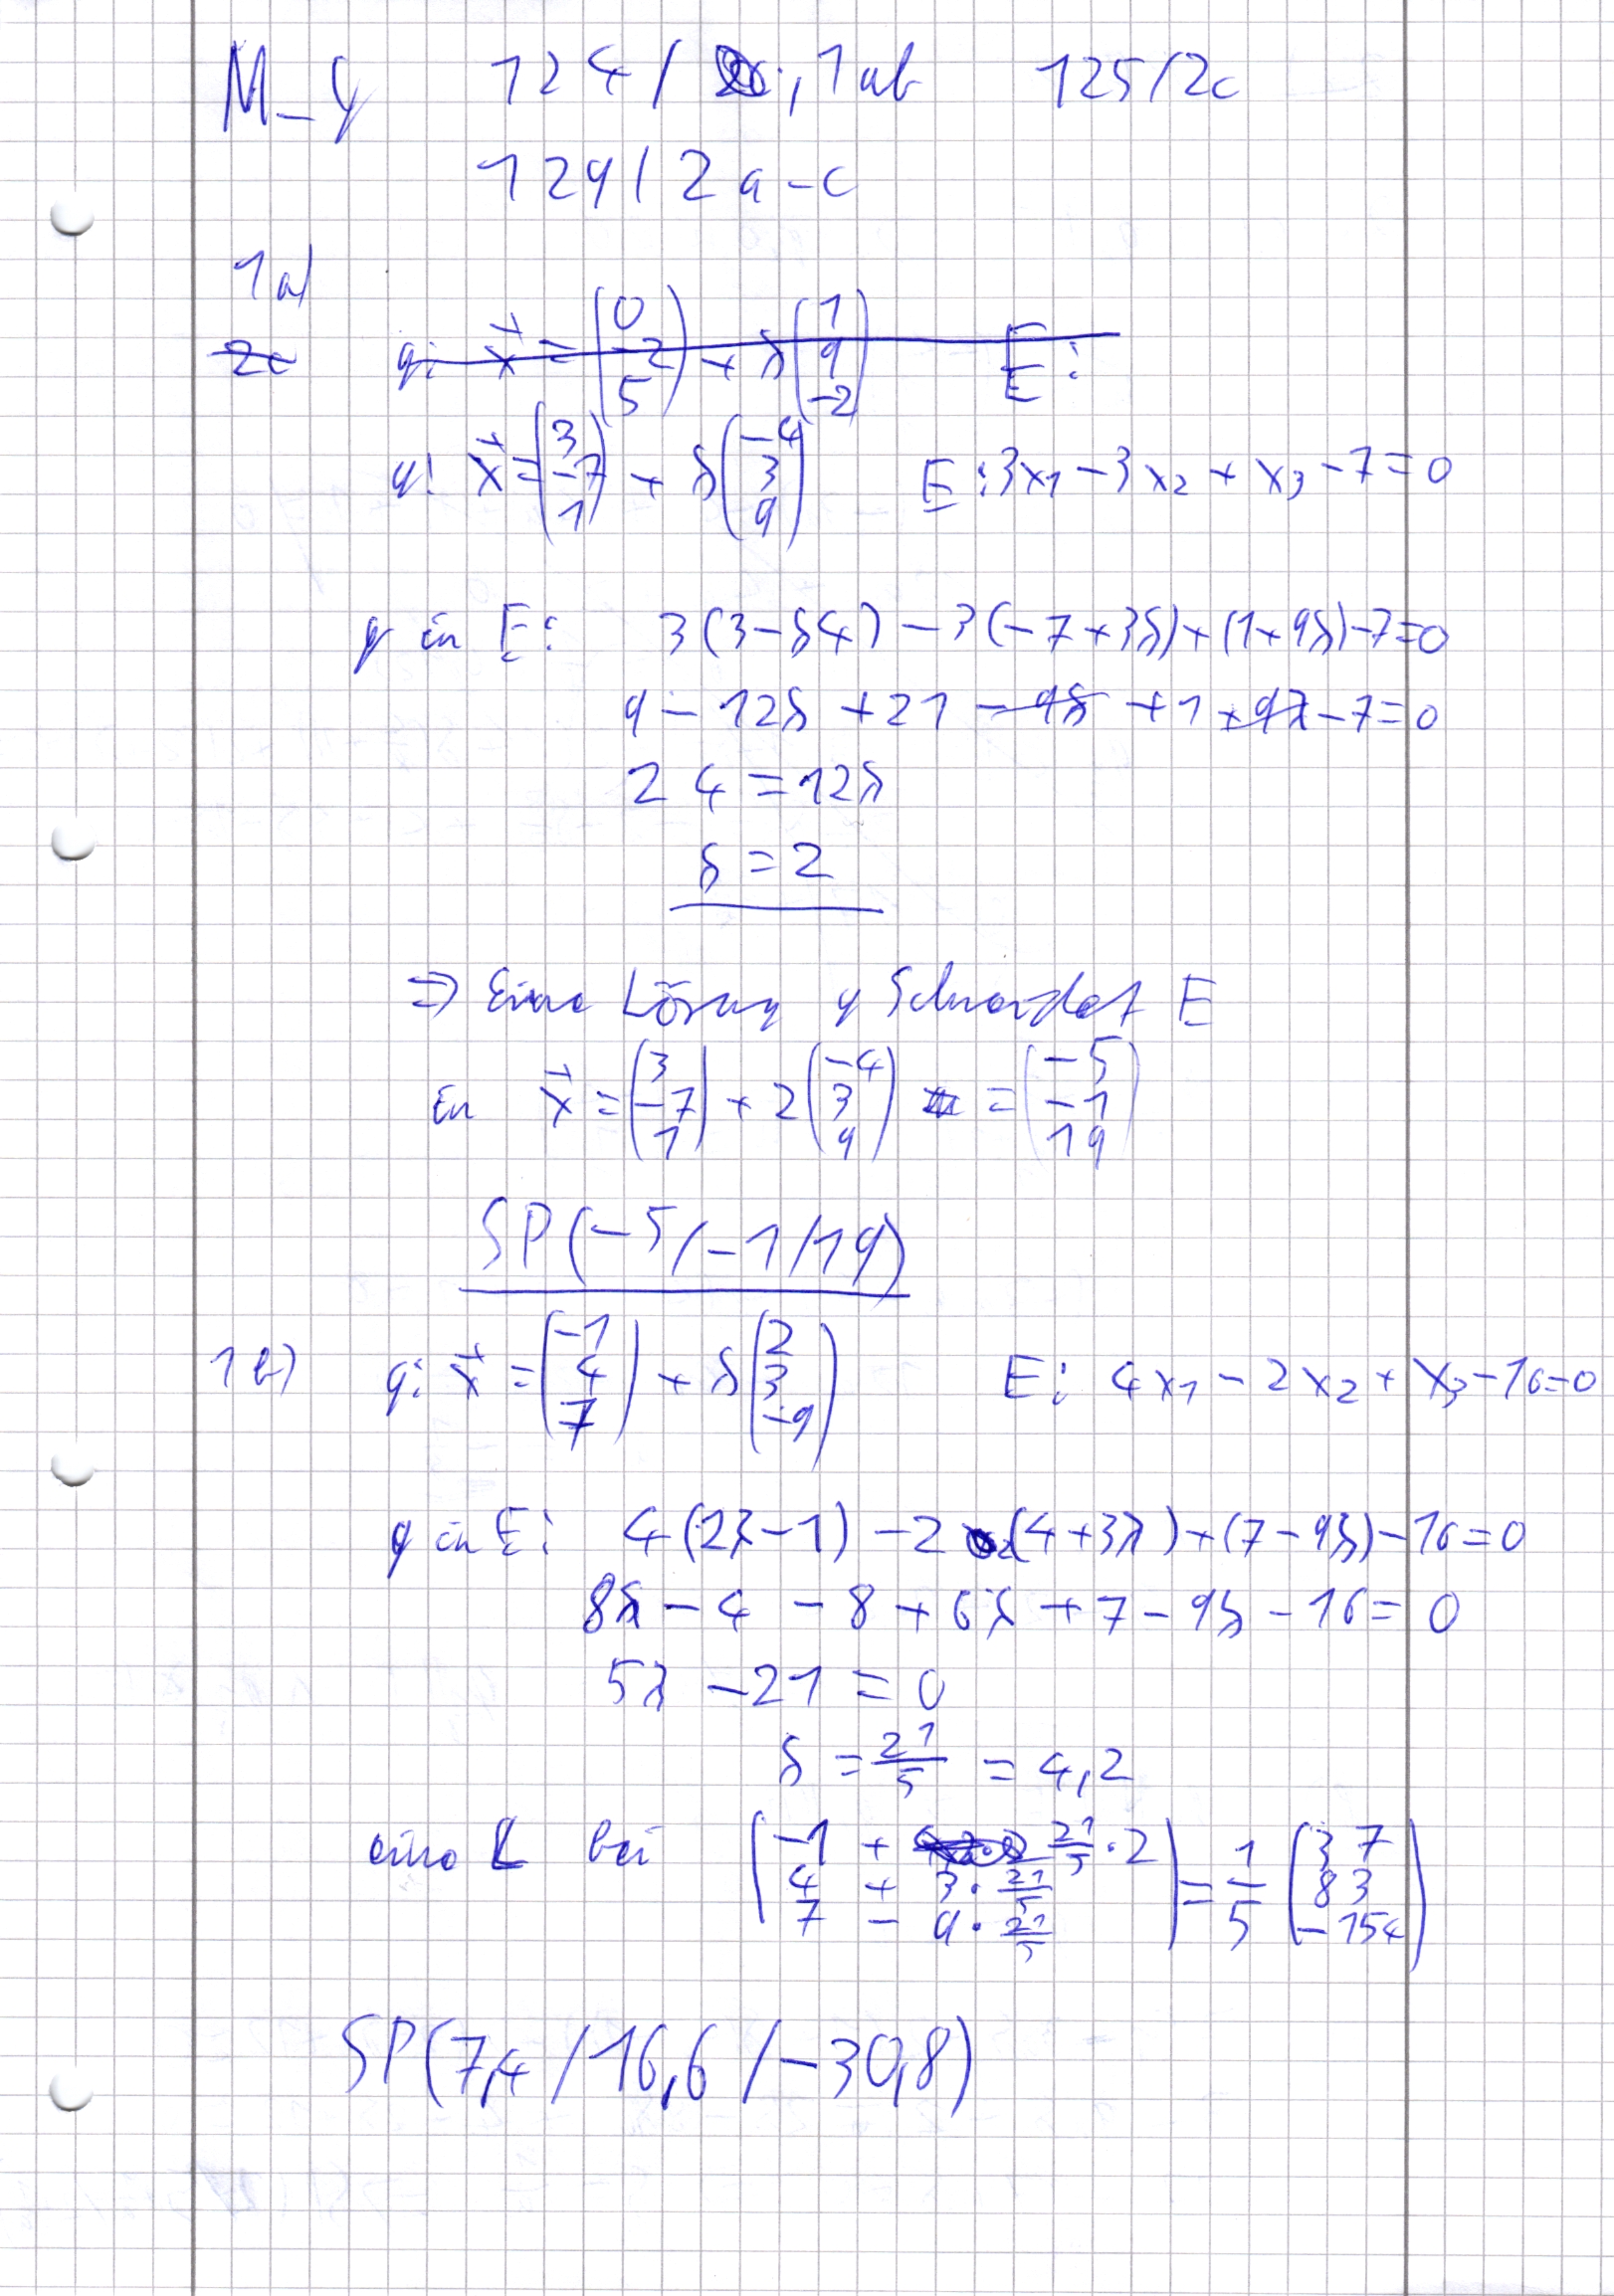 M_4 124 / , 1ab 125/2c
129 / 2 a-c
1a)
2c g: x⃗ = (0 -2 5) + λ (1 9 -2) E:
g: x⃗ = (3 -7 1) + λ (-4 3 9) E: 3x₁ - 3x₂ + x₃ - 7 = 0
g in E: 3(3 - λ4) - 3(-7 + 3λ) + (1 + 9λ) - 7 = 0
9 - 12λ + 21 - 9λ + 1 + 9λ - 7 = 0
24 = 12λ
λ = 2
⇒ Eine Lösung g Schneidet E
in x⃗ = (3 -7 1) + 2 (-4 3 9) = (-5 -1 19)
SP(-5/-1/19)
1b) g: x⃗ = (-1 4 7) + λ (2 3 -9) E: 4x₁ - 2x₂ + x₃ - 16 = 0
g in E: 4(2λ - 1) - 2 (4 + 3λ) + (7 - 9λ) - 16 = 0
8λ - 4 - 8 + 6λ + 7 - 9λ - 16 = 0
5λ - 21 = 0
λ = 21/5 = 4,2
eine L bei (-1 + 21/5 · 2 4 + 3 · 21/5 7 - 9 · 21/5) = 1/5 (37 83 -154)
SP(7,4 / 16,6 / -30,8)